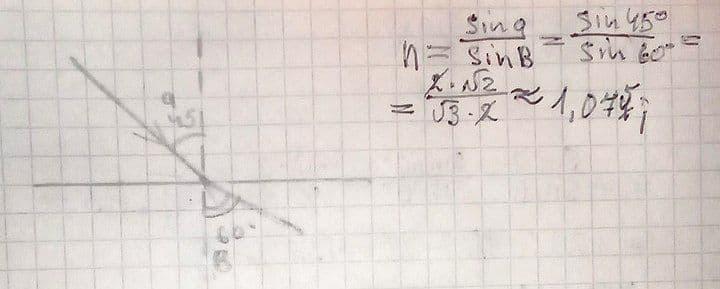 n = sin α / sin B = sin 45° / sin 60° =
= 2·√2 / √3·2 ≈ 1,074;
α
45
60°
B